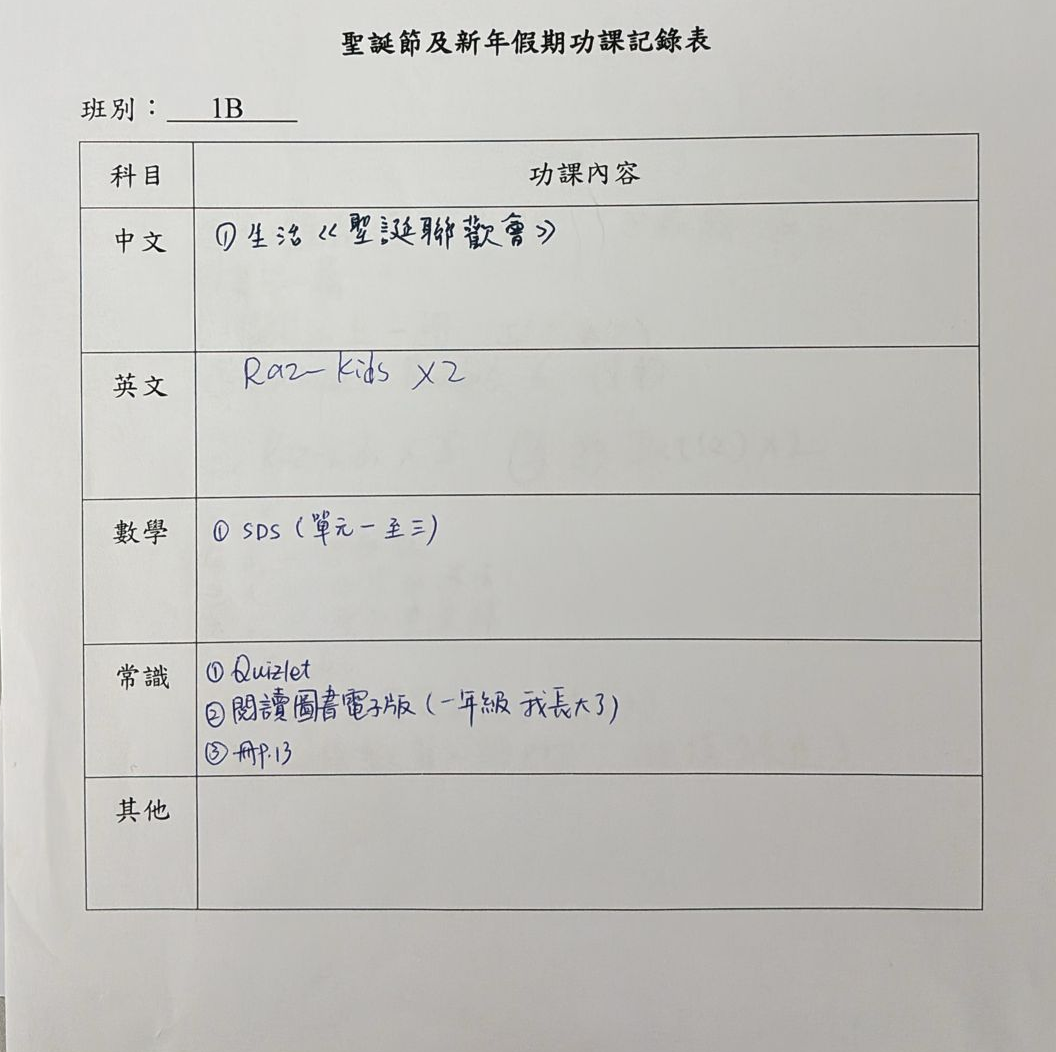 聖誕節及新年假期功課記錄表
班別： 1B
科目 功課內容
中文 ① 生活《聖誕聯歡會》
英文 Raz-Kids X2
數學 ① SDS (單元一至三)
常識 ① Quizlet
② 閱讀圖書電子版 (一年級 我長大了)
③ 冊P.13
其他